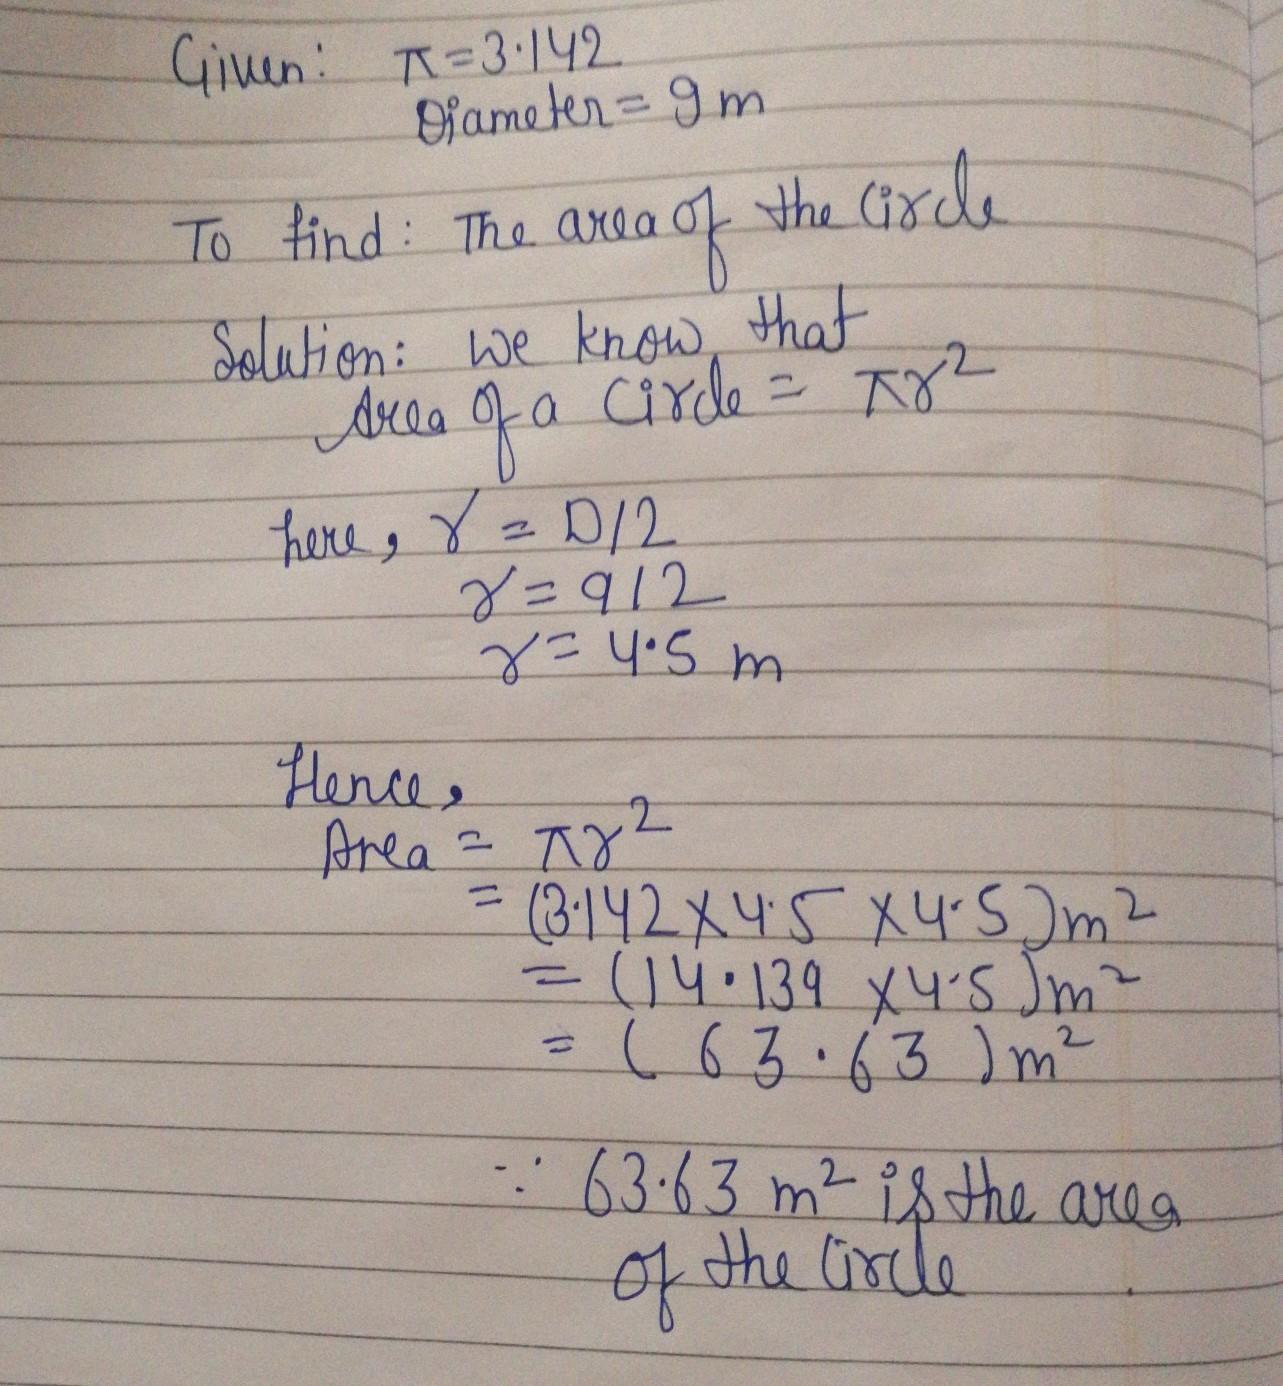 Given: π = 3.142
Diameter = 9 m
To find: The area of the Circle
Solution: We know that
Area of a Circle = πr²
here, r = D/2
r = 9/2
r = 4.5 m
Hence,
Area = πr²
= (3.142 × 4.5 × 4.5) m²
= (14.139 × 4.5) m²
= (63.63) m²
∵ 63.63 m² is the area
of the Circle